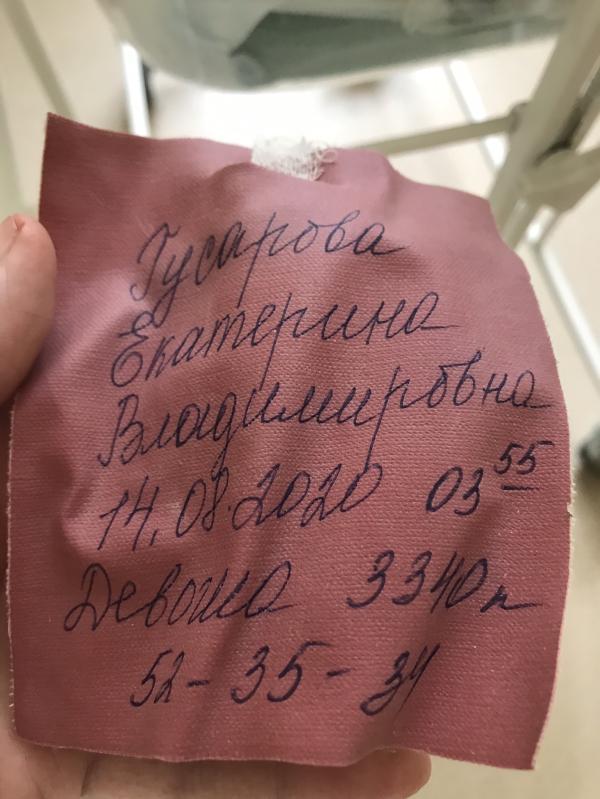 Гусарова
Екатерина
Владимировна
14.08.2020 03 55
Девочка 3340 г
52-35-34